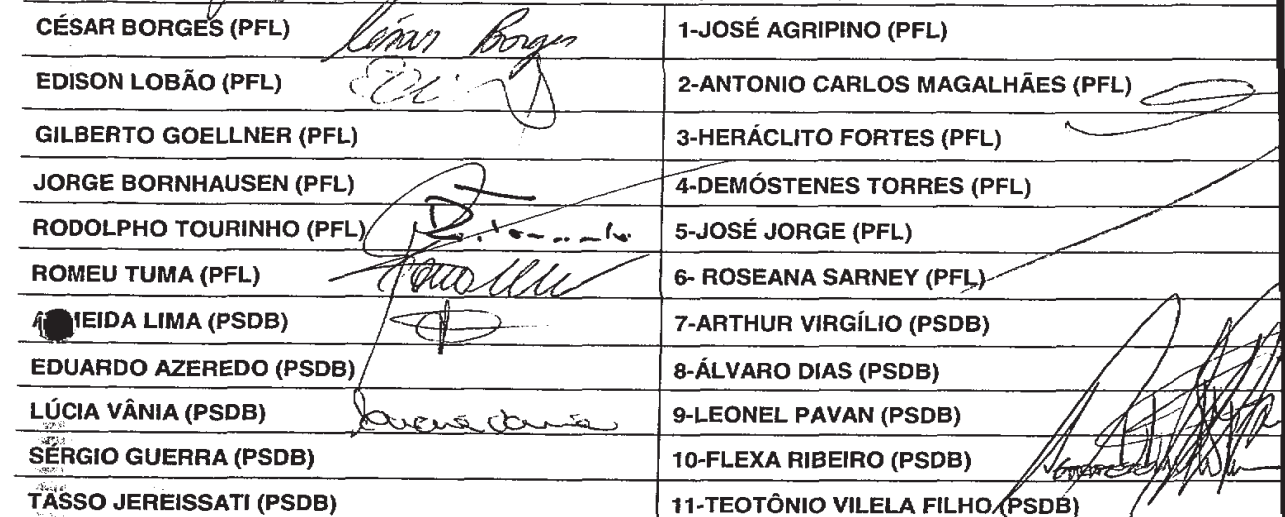 CÉSAR BORGES (PFL) César Borges 1-JOSÉ AGRIPINO (PFL)
EDISON LOBÃO (PFL) 2-ANTONIO CARLOS MAGALHÃES (PFL)
GILBERTO GOELLNER (PFL) 3-HERÁCLITO FORTES (PFL)
JORGE BORNHAUSEN (PFL) 4-DEMÓSTENES TORRES (PFL)
RODOLPHO TOURINHO (PFL) 5-JOSÉ JORGE (PFL)
ROMEU TUMA (PFL) 6- ROSEANA SARNEY (PFL)
MEIDA LIMA (PSDB) 7-ARTHUR VIRGÍLIO (PSDB)
EDUARDO AZEREDO (PSDB) 8-ÁLVARO DIAS (PSDB)
LÚCIA VÂNIA (PSDB) 9-LEONEL PAVAN (PSDB)
SÉRGIO GUERRA (PSDB) 10-FLEXA RIBEIRO (PSDB)
TASSO JEREISSATI (PSDB) 11-TEOTÔNIO VILELA FILHO (PSDB)